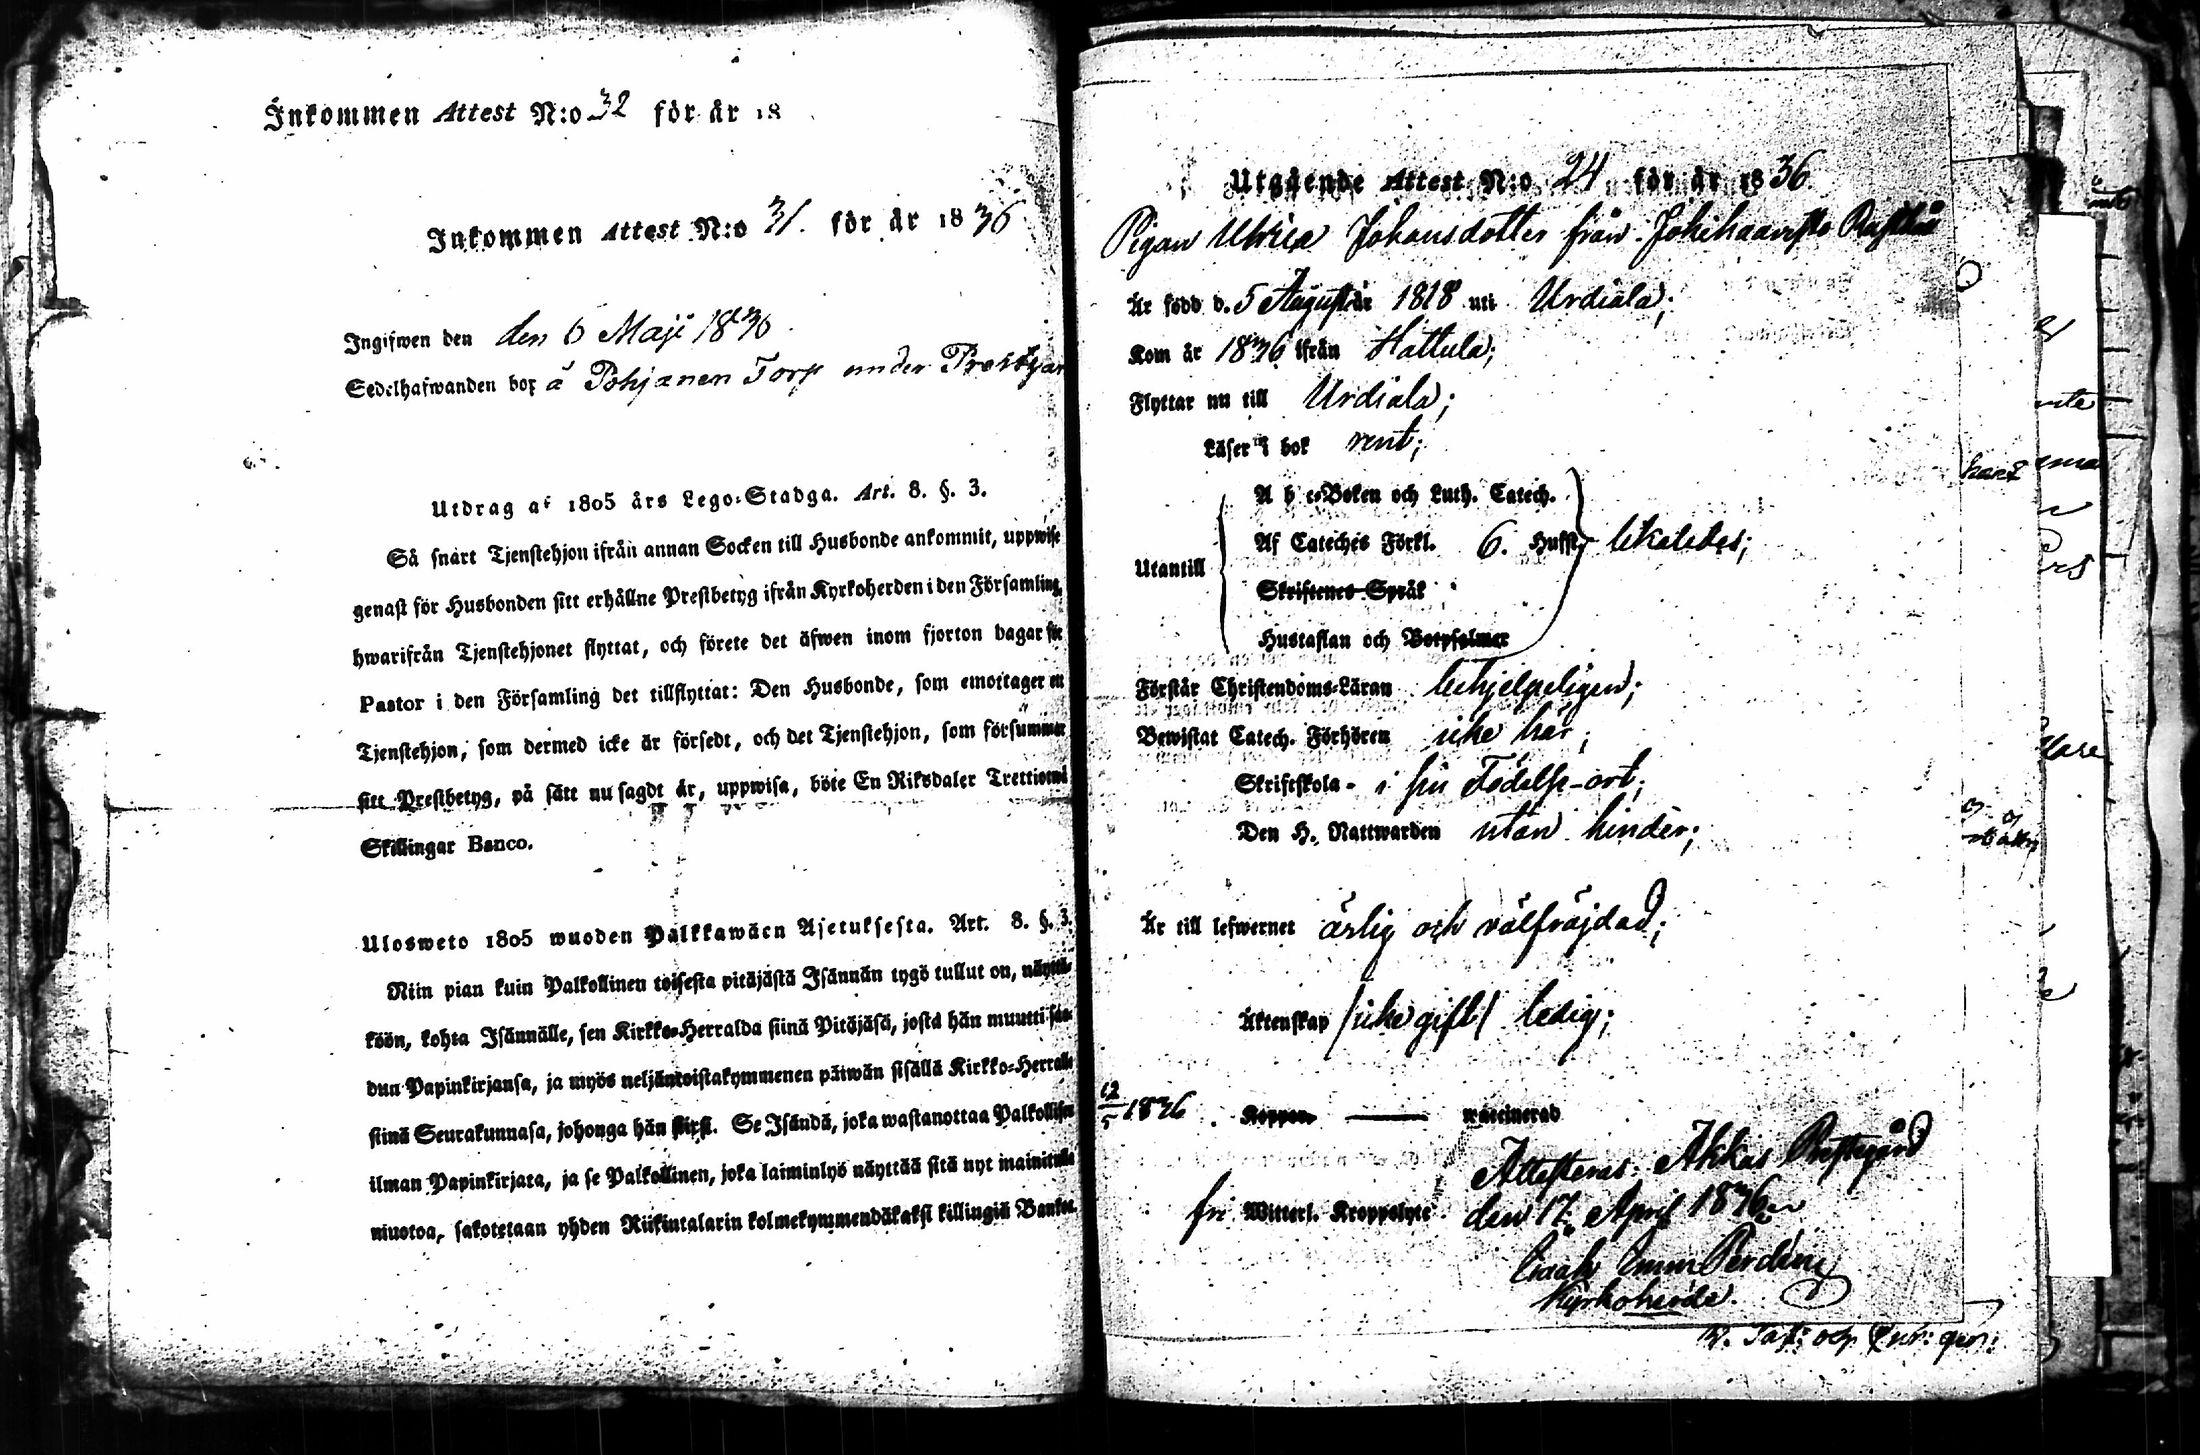 Inkommen Attest N:o 32 för år 18
Inkommen Attest N:o 31. för år 1836
Ingifwen den den 6 Maji 1836
Sedelhafwanden bor å Pohjanen Torp under Prestgår
Utdrag af 1805 års Lego-Stadga. Art. 8. §. 3.
Så snart Tjenstehjon ifrån annan Socken till Husbonde ankommit, uppwise
genast för Husbonden sitt erhållne Prestbetyg ifrån Kyrkoherden i den Församling,
hwarifrån Tjenstehjonet flyttat, och förete det äfwen inom fjorton dagar för
Pastor i den Församling det tillflyttat: Den Husbonde, som emottager en
Tjenstehjon, som dermed icke är försedt, och det Tjenstehjon, som försummar
sitt Prestbetyg, på sätt nu sagdt är, uppwisa, böte En Riksdaler Trettiotwå
Skillingar Banco.
Ulosweto 1805 wuoden Palkkawäen Ajetuksesta. Art. 8. §. 3.
Niin pian kuin Palkollinen toisesta pitäjästä Isännän tygö tullut on, näyttä-
köön, kohta Isännälle, sen Kirkko-Herralda siinä Pitäjäsä, josta hän muutti saa-
dun Papinkirjansa, ja myös neljäntoistakymmenen päiwän sisällä Kirkko-Herralle
siinä Seurakunnasa, johonga hän siirsi. Se Isändä, joka wastanottaa Palkollisen
ilman Papinkirjata, ja se Palkollinen, joka laiminlyö näyttää sitä nyt mainitulla
muotoa, sakotetaan yhden Riikintalarin kolmekymmendäkaksi killingiä Bankos.
Utgående Attest N:o 24 för år 1836.
Pigan Ulrica Johansdotter från Jokihaavisto Rusthåll
Är född d. 5 Augusti år 1818 uti Urdiala;
Kom år 1836 ifrån Hattula;
Flyttar nu till Urdiala;
Läser i bok rent;
A b c-Boken och Luth. Catech.
Af Cateches Förkl. 6. Hufst. likaledes;
Utantill
Skriftenes Språk
Hustaflan och Botpsalmer
Förstår Christendoms-Läran behjelpeligen;
Bewistat Catech. Förhören icke här;
Skriftskola - i sin Födelse-ort;
Den H. Nattwarden utan hinder;
Är till lefwernet ärlig och välfräjdad;
Äktenskap /icke gift/ ledig;
12/5 1836. Koppor wactinerad
Attesteras. Akkas Prestegård
fri Witterl. Kroppslyte den 17 April 1836
Kyrkoherde.